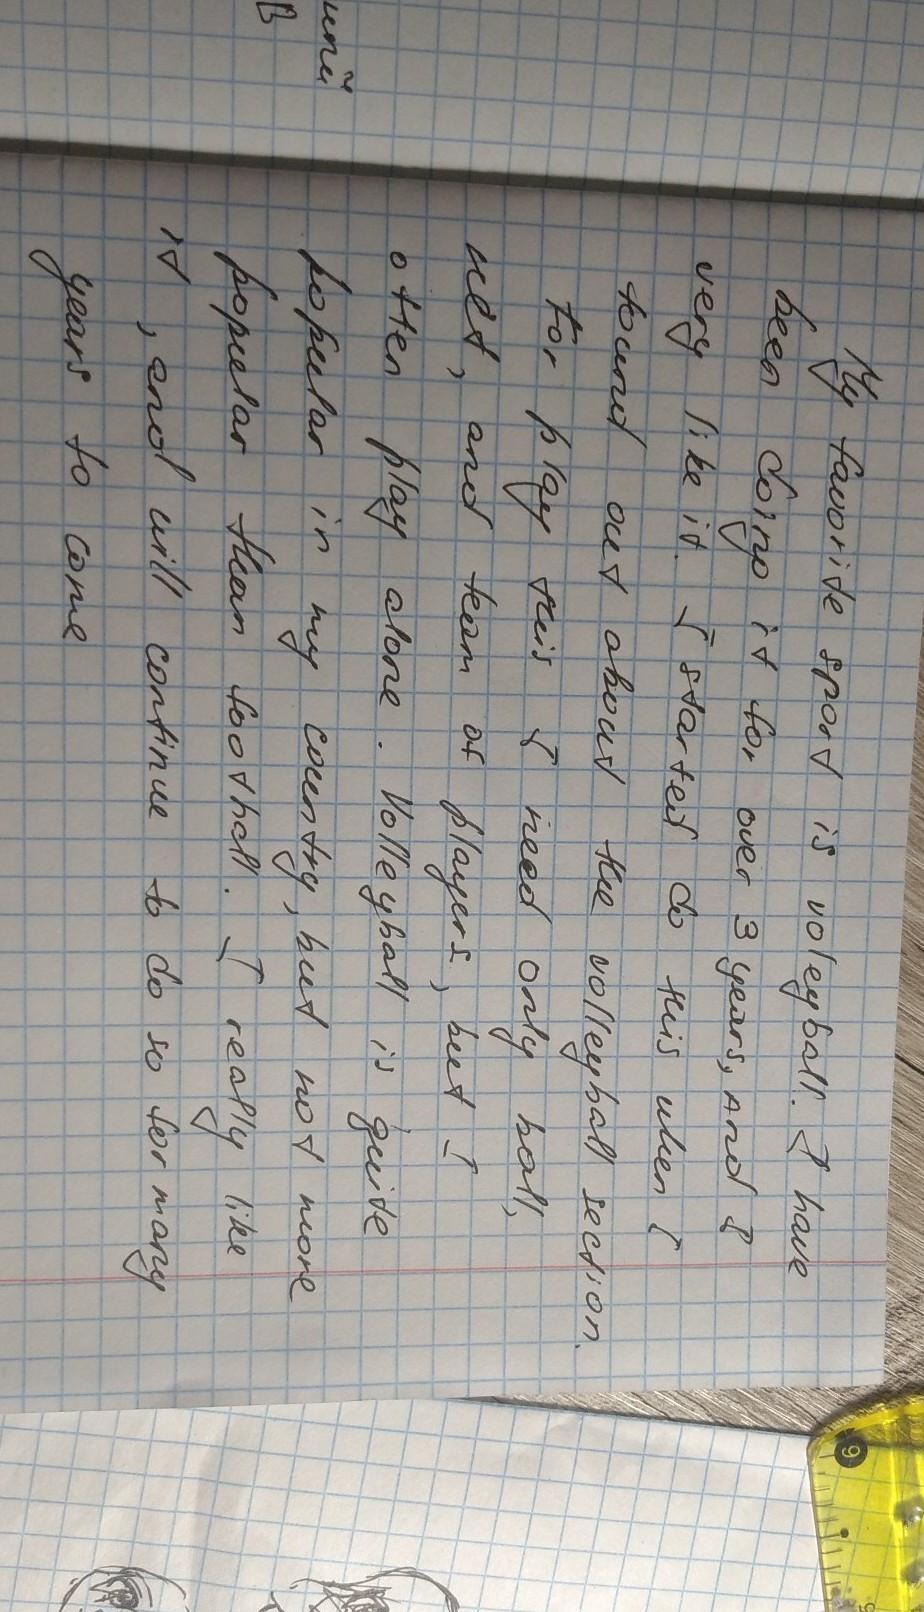 My favorite sport is voleyball. I have
been doing it for over 3 years, and I
very like it. I started do this when I
found out about the volleyball section.
For play this I need only ball,
net, and team of players, but I
often play alone. Volleyball is quite
popular in my country, but not more
popular than football. I really like
it, and will continue to do so for many
years to come
В
9